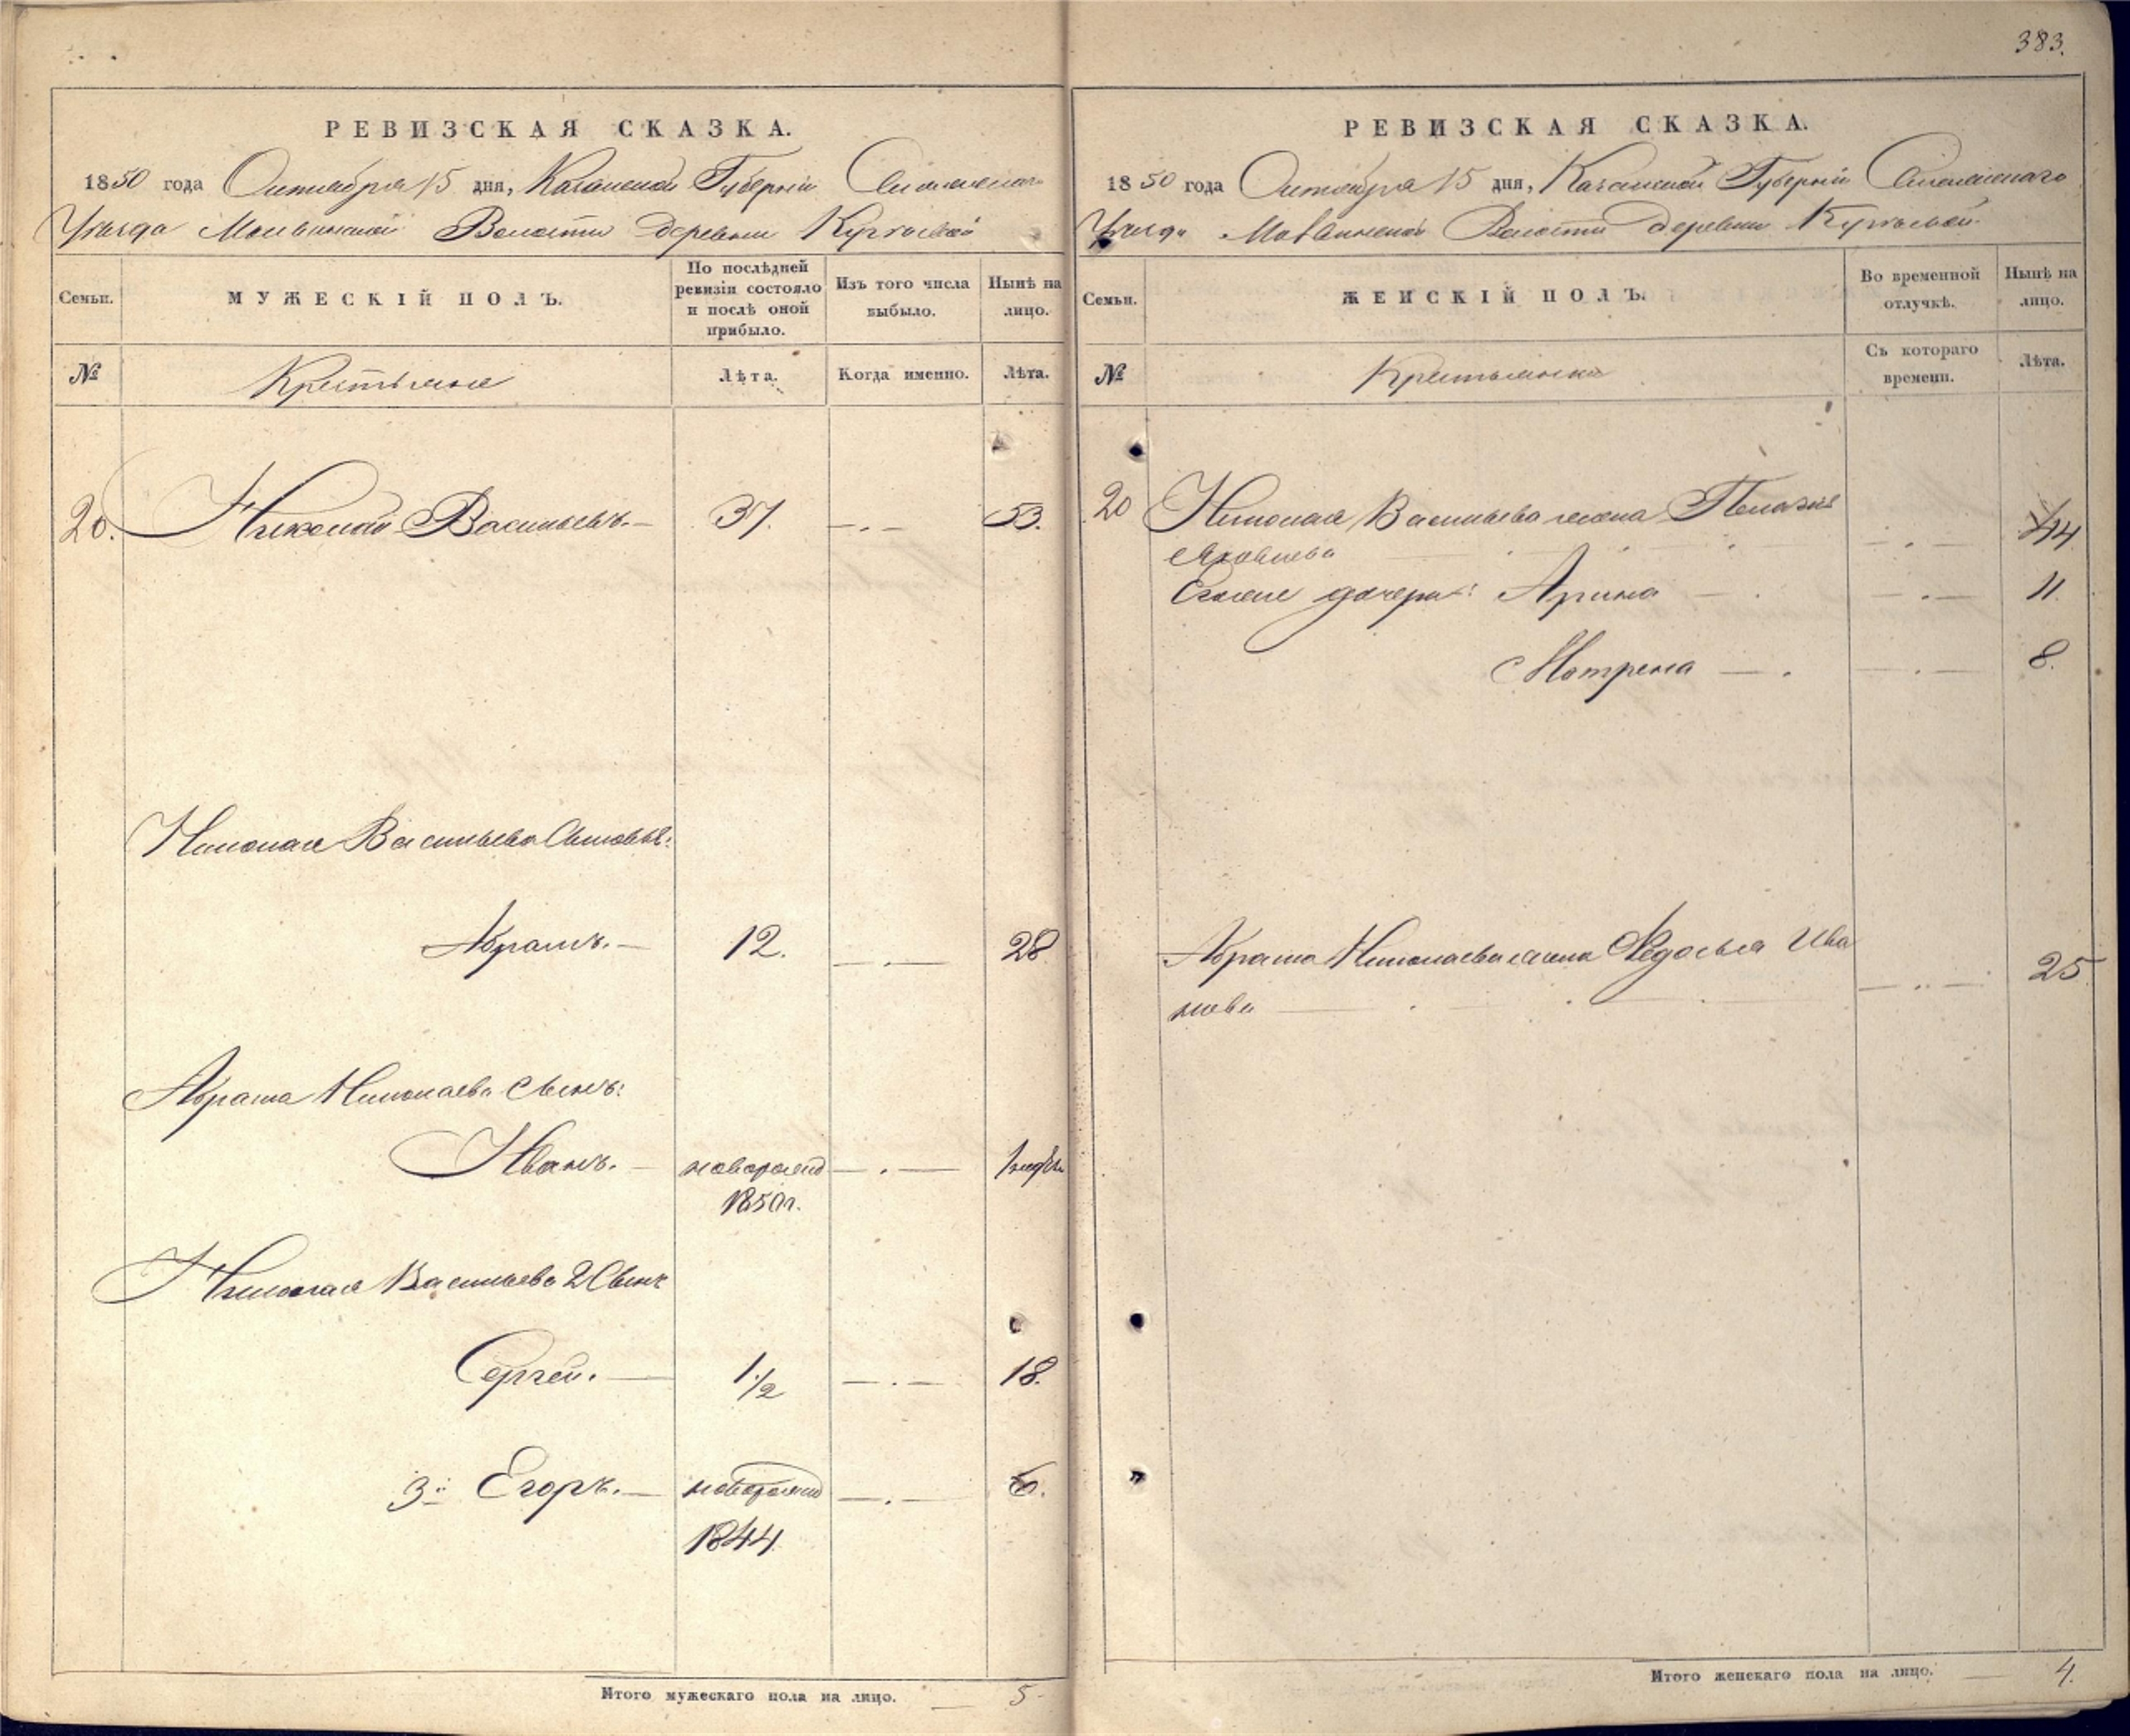 383.
РЕВИЗСКАЯ СКАЗКА.
1850 года Октября 15 дня, Казанской Губерніи
Уѣзда Волости деревни
Семьи.
МУЖЕСКІЙ ПОЛЪ.
По послѣдней ревизіи состояло и послѣ оной прибыло.
Изъ того числа выбыло.
Нынѣ на лицо.
№
Крестьяне
Лѣта.
Когда именно.
Лѣта.
20. Николай Васильевъ. — 37. —.— 53.
Николая Васильева Сыновья:
Абрамъ. — 12. —.— 28
Абрама Николаева сынъ:
Иванъ. — новорожд —.—
1850 г.
Николая Васильева 2 Сынъ
Сергей. — 1 1/2 —.— 18.
3й Егоръ. — новорожд —.— 6.
1844
Итого мужескаго пола на лицо. — 5
РЕВИЗСКАЯ СКАЗКА.
1850 года Октября 15 дня, Казанской Губерніи
Уѣзда Волости деревни
Семьи.
ЖЕНСКІЙ ПОЛЪ.
Во временной отлучкѣ.
Нынѣ на лицо.
№
Крестьянска
Съ котораго времени.
Лѣта.
20 Николая Васильева жена Пелагия
Яковлева —.— 44
дочери: Арина — . —.— 11
Матрена — . —.— 8.
Абрама Николаева жена Федосья Ива
нова —.— 25
Итого женскаго пола на лицо. — 4.